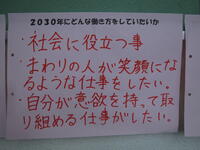 2030年にどんな働き方をしていたいか
・社会に役立つ事
・まわりの人が笑顔にな
るような仕事をしたい。
・自分が意欲を持って取
り組める仕事がしたい。